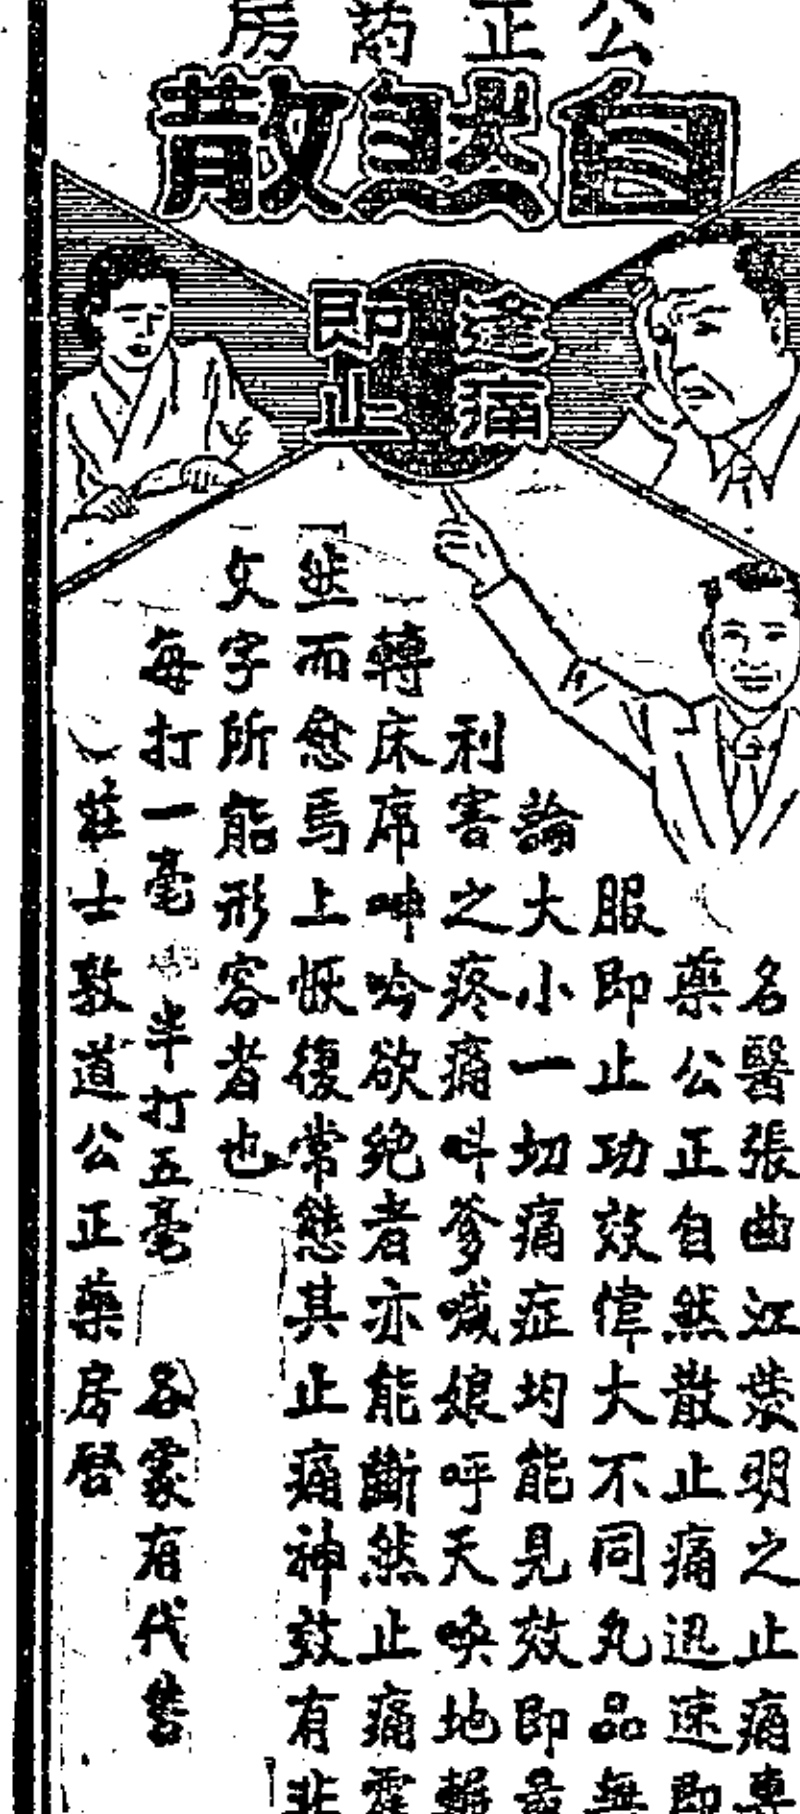 公正药房
自然散
逢痛
即止
名醫張曲江發明之止痛專
藥公正自然散止痛迅速即
服即止功效偉大不同丸品無
論大小一切痛症均能見效即最
利害之疼痛呌爹喊娘呼天喚地輾
轉床席呻吟欲絕者亦能斷然止痛霍
然而愈馬上恢復常態其止痛神效有非
文字所能形容者也
每打一毫 半打五毫 各處有代售
莊士敦道公正藥房啓